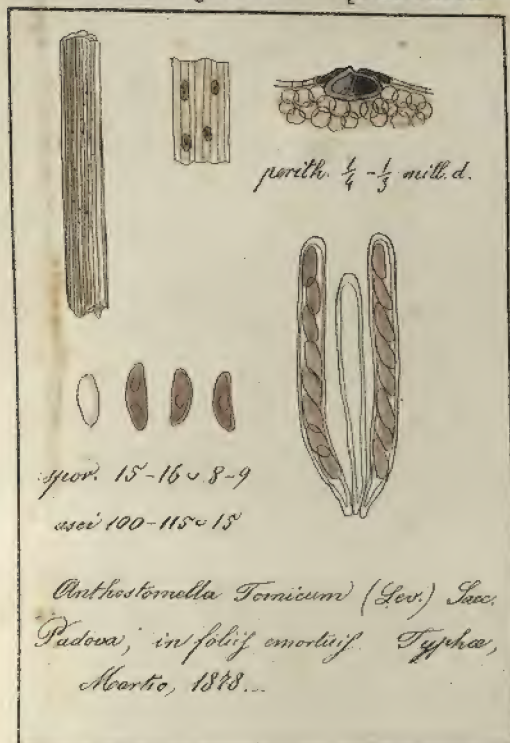 perith. 1/4 - 1/3 mill. d.
spor. 15-16 ᴗ 8-9
asci 100-115 ᴗ 15
Anthostomella Tomicum (Lev.) Sacc.
Padova, in foliis emortuis Typhæ,
Martio, 1878...